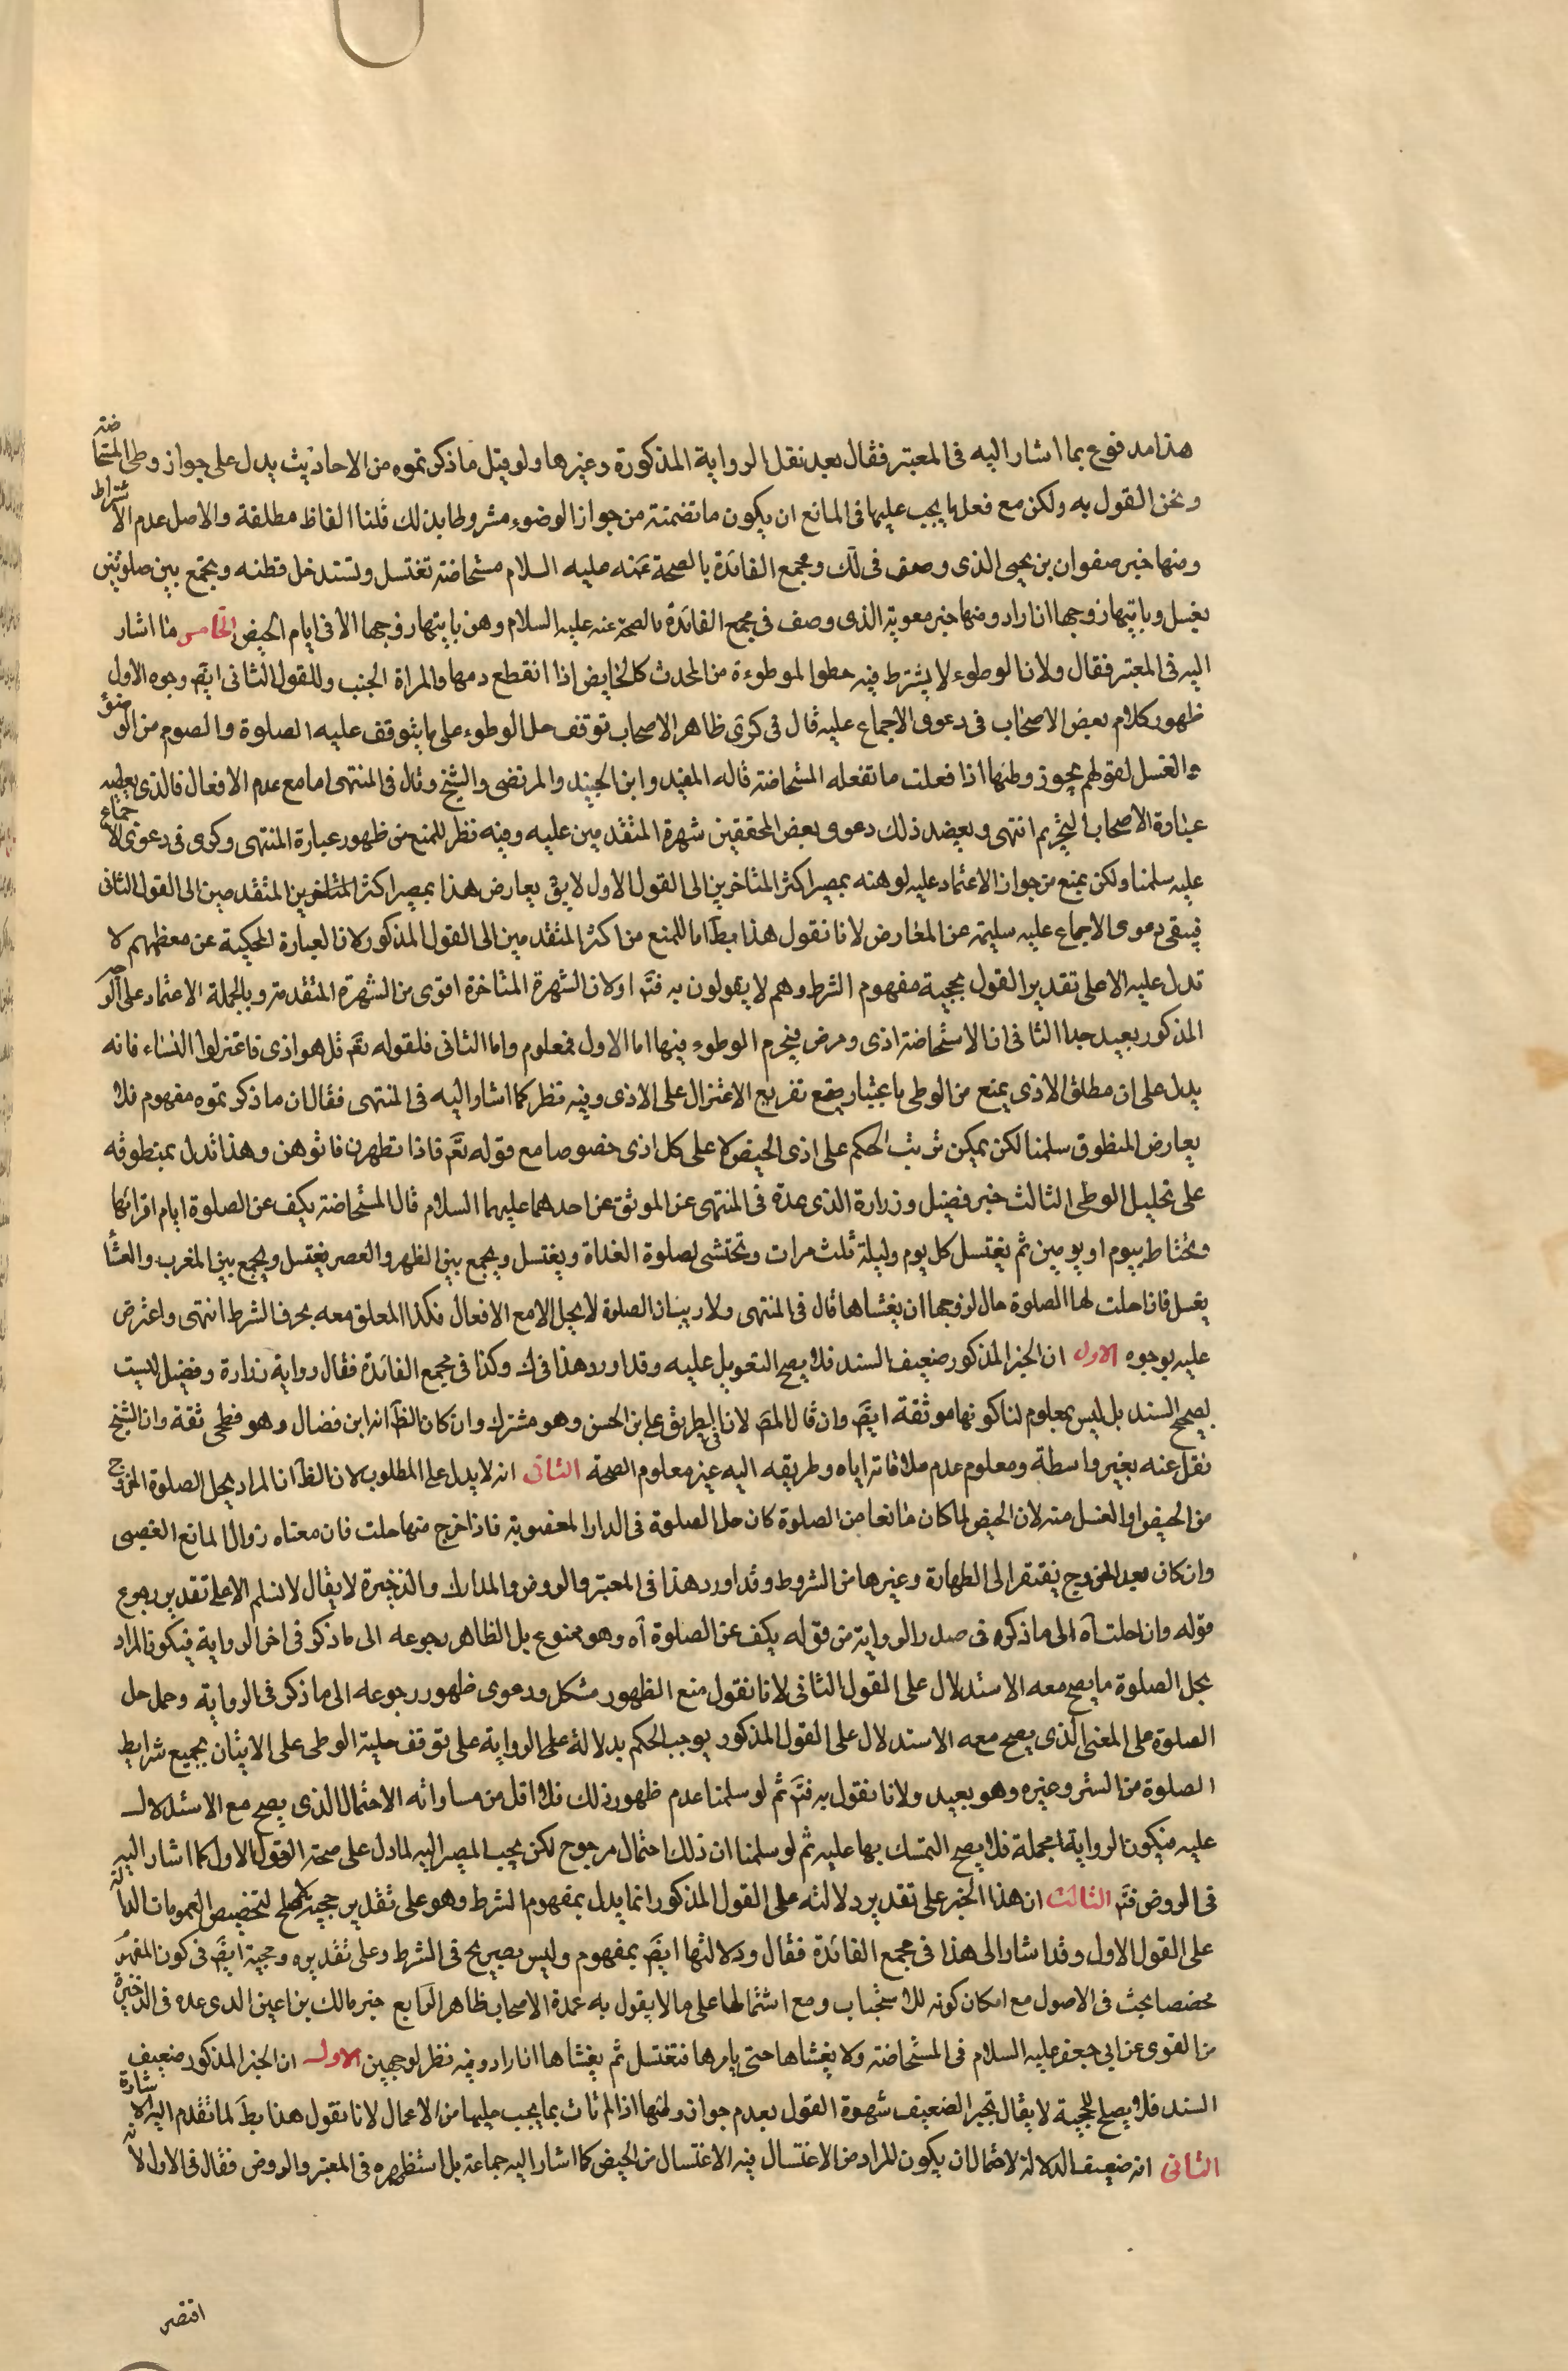 هذا مدفوع بما اشار اليه فى المعتبر فقال بعد نقل الرواية المذكورة وغيرها ولو قيل ما ذكرتموه من الاحاديث يدل على جواز وطى المستحاضة
ونحن القول به ولكن مع فعل ما يجب عليها فى المانع ان يكون ما تضمنته من جواز الوضوء مشروطا بذلك قلنا الفاظ مطلقة والاصل عدم الاشتراط
ومنها خبر صفوان بن يحيى الذى وصف فى لك ومجمع الفائدة بالصحة عنه عليه السلام مستحاضة تغتسل وتستدخل قطنه وتجمع بين صلوتين
بغسل وياتيها زوجها ان اراد ومنها خبر معوية الذى وصف فى مجمع الفائدة بالصحة عنه عليه السلام وهن ياتيها زوجها الا فى ايام الحيض الخامس ما اشار
اليه فى المعتبر فقال ولان الوطوء لا يشترط فيه خطوا لموطوءة من الحدث كالحايض اذا انقطع دمها والمراة الجنب وللقول الثانى ايضً وجوه الاول
ظهور كلام بعض الاصحاب فى دعوى الاجماع عليه قال فى كرى ظاهر الاصحاب توقف حل الوطوء على ما يتوقف عليه الصلوة والصوم من الوضوء
والغسل لقولهم يجوز وطئها اذا فعلت ما تفعله المستحاضة قاله المفيد وابن الجنيد والمرتضى والشيخ وقال فى المنتهى اما مع عدم الافعال فالذى يعطيه
عبارة الاصحاب التحريم انتهى ويعضد ذلك دعوى بعض المحققين شهرة المتقدمين عليه وفيه نظر للمنع من ظهور عبارة المنتهى وكرى فى دعوى الاجماع
عليه سلمنا ولكن يمنع من جواز الاعتماد عليه لوهنه بمصير اكثر المتاخرين الى القول الاول لا يقً يعارض هذا بمصير اكثر المتقدمين الى القول الثانى
فيبقى دعوى الاجماع عليه سليمة عن المعارض لانا نقول هذا بطً اما للمنع من اكثر المتقدمين الى القول المذكور لان العبارة المحكية عن معظمهم لا
تدل عليه الا على تقدير القول بحجية مفهوم الشرط وهم لا يقولون به فتمً او لان الشهرة المتاخرة اقوى من الشهرة المتقدمة وبالجملة الاعتماد على الوجه
المذكور بعيد جدا الثانى ان الاستحاضة اذى ومرض فيحرم الوطوء فيها اما الاول فمعلوم واما الثانى فلقوله تعً قل هو اذى فاعتزلوا النساء فانه
يدل على ان مطلق الاذى يمنع من الوطى باعتبار وقع تفريع الاعتزال على الاذى وفيه نظر كما اشار اليه فى المنتهى فقال ان ما ذكرتموه مفهوم فلا
يعارض المنطوق سلمنا لكن يمكن ترتب الحكم على اذى الحيض لا على كل اذى خصوصا مع قوله تعً فاذا تطهرن فاتوهن وهذا تدل بمنطوقه
على تحليل الوطى الثالث خبر فضيل وزرارة الذى عده فى المنتهى عن الموثق عن احدهما عليهما السلام قال المستحاضة يكف عن الصلوة ايام اقرائها
وتحتاط بيوم او يومين ثم يغتسل كل يوم وليلة ثلث مرات وتحتشى لصلوة الغداة ويغتسل ويجمع بين الظهر والعصر بغسل ويجمع بين المغرب والعشا
بغسل فاذا حلت لها الصلوة حال لزوجها ان يغشاها قال فى المنتهى ولا ريب ان الصلوة لا يحل الا مع الافعال فكذا المعلق معه بحرف الشرط انتهى واعترض
عليه بوجوه الاول ان الخبر المذكور ضعيف السند فلا يصح التعويل عليه وقد اورد هذا فى لك وكذا فى مجمع الفائدة فقال رواية زرارة وفضيل ليست
بصحيح السند بل ليس بمعلوم لنا كونها موثقة ايضً وان قال المصً لان فى الطريق على بن الحسن وهو مشترك وان كان الظً انه ابن فضال وهو فطحى ثقة وان الشيخ
نقل عنه بغير واسطة ومعلوم عدم ملاقاته اياه وطريقه اليه غير معلوم الصحة الثانى انه لا يدل على المطلوب لان الظً ان المراد بحل الصلوة الخروج
من الحيض او الغسل منه لان الحيض لما كان مانعا من الصلوة كان حل الصلوة فى الدار المغصوبة فاذا خرج منها حلت فان معناه زوال المانع الغصبى
وان كان بعد الخروج يفتقر الى الطهارة وغيرها من الشروط وقد اورد هذا فى المعتبر والروض والمدارك والذخيرة لا يقال لا نسلم الا على تقدير رجوع
قوله وان احلت اه الى ما ذكره فى صدر الرواية من قوله يكف عن الصلوة اه وهو ممنوع بل الظاهر رجوعه الى ما ذكر فى اخر الرواية فيكون المراد
بحل الصلوة ما يصح معه الاستدلال على القول الثانى لانا نقول منع الظهور مشكل ودعوى ظهور رجوعه الى ما ذكر فى الرواية وحمل حل
الصلوة على المعنى الذى يصح معه الاستدلال على القول المذكور يوجب الحكم بدلالة على الرواية على توقف حلية الوطى على الاتيان بجميع شرايط
الصلوة من الستر وغيره وهو بعيد ولانا نقول به فتمً ثم لو سلمنا عدم ظهور ذلك فلا اقل من مساواته الاحتمال الذى يصح مع الاستدلال
عليه فيكون الرواية مجملة فلا يصح التمسك بها عليه ثم لو سلمنا ان ذلك احتمال مرجوح لكن يجب المصير اليه لما دل على صحة القول الاول كما اشار اليه
فى الروض فتمً الثالث ان هذا الخبر على تقدير دلالته على القول المذكور انما يدل بمفهوم الشرط وهو على تقدير حجيته لا يصلح لتخصيص العمومات الدالة
على القول الاول وقد اشار الى هذا فى مجمع الفائدة فقال ودلالتها ايضً بمفهوم وليس بصريح فى الشرط وعلى تقديره وحجية ايضً فى كون المفهوم
مخصصا بحث فى الاصول مع امكان كونه للاستحباب ومع اشتمالها على ما لا يقول به عمدة الاصحاب ظاهر الرابع خبر مالك بن اعين الذى عده فى الذخيرة
من القوى عن ابى جعفر عليه السلام فى المستحاضة ولا يغشاها حتى يامرها فتغتسل ثم يغشاها ان اراد وفيه نظر لوجهين الاول ان الخبر المذكور ضعيف
السند فلا يصلح للحجية لا يقال تجبر الضعيف شهرة القول بعدم جواز وطئها اذا لم تات بما يجب عليها من الاعمال لانا نقول هذا بطً لما تقدم اليه الاشارة
الثانى انه ضعيف الدلالة لاحتمال ان يكون المراد من الاغتسال فيه الاغتسال من الحيض كما اشار اليه جماعة بل استظهره فى المعتبر والروض فقال فى الاول لانه
اقتصر